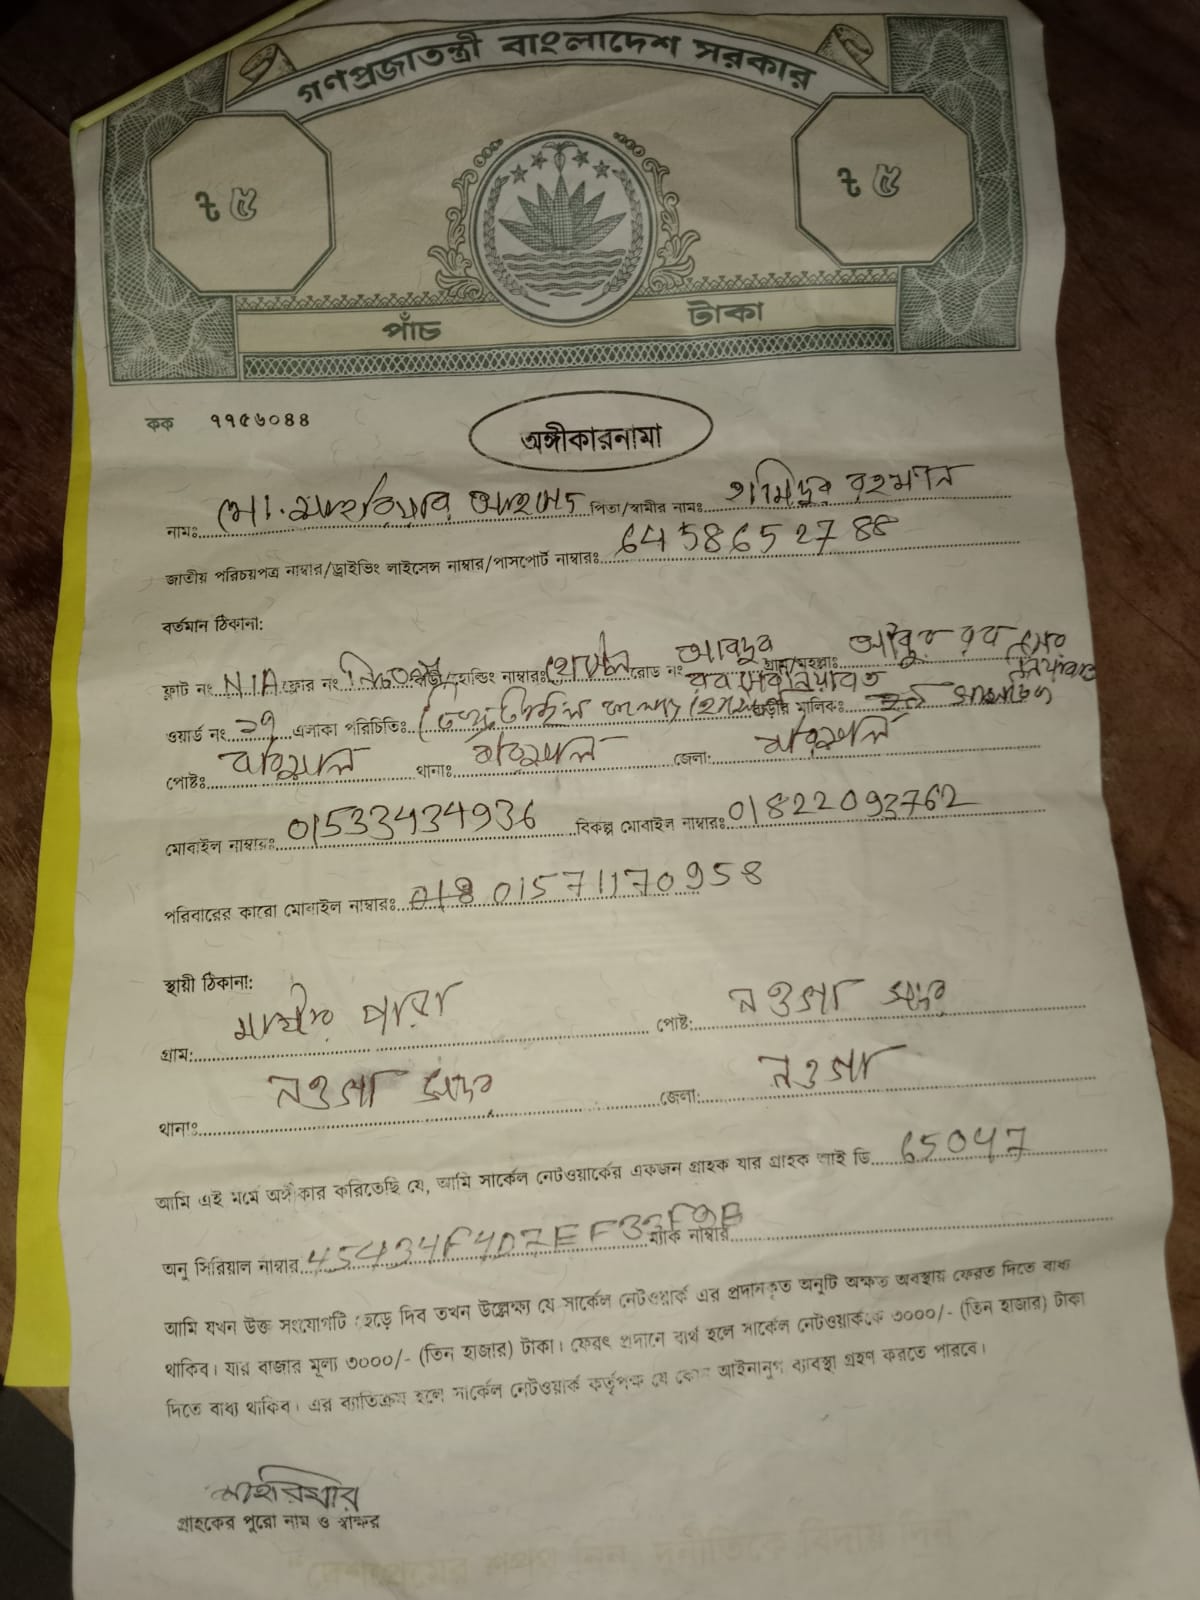 গণপ্রজাতন্ত্রী বাংলাদেশ সরকার
৳ ৫
৳ ৫
পাঁচ টাকা
কক ৭৭৫৬০৪৪
অঙ্গীকারনামা
নামঃ মো. শাহরিয়ার আহমেদ পিতা/স্বামীর নামঃ হামিদুর রহমান
জাতীয় পরিচয়পত্র নাম্বার/ড্রাইভিং লাইসেন্স নাম্বার/পাসপোর্ট নাম্বারঃ 6458652788
বর্তমান ঠিকানা:
ফ্লাট নং N/A ফ্লোর নং হোল্ডিং নাম্বারঃ রোড নং আবদুর রব গ্রাম/মহল্লাঃ আব্দুর রব
ওয়ার্ড নং ২৭ এলাকা পরিচিতিঃ বাড়ীর মালিকঃ
পোষ্টঃ বরিশাল থানাঃ বরিশাল জেলা: বরিশাল
মোবাইল নাম্বারঃ 01533434936 বিকল্প মোবাইল নাম্বারঃ 01822093762
পরিবারের কারো মোবাইল নাম্বারঃ 018 01571170958
স্থায়ী ঠিকানা:
গ্রাম: পাড়া পোষ্ট: নওগাঁ সদর
থানাঃ নওগাঁ সদর জেলা: নওগাঁ
আমি এই মর্মে অঙ্গীকার করিতেছি যে, আমি সার্কেল নেটওয়ার্কের একজন গ্রাহক যার গ্রাহক আই ডি 65047
অনু সিরিয়াল নাম্বার 45434F4D7EF33F9B ম্যাক নাম্বার
আমি যখন উক্ত সংযোগটি ছেড়ে দিব তখন উল্লেক্ষ্য যে সার্কেল নেটওয়ার্ক এর প্রদানকৃত অনুটি অক্ষত অবস্থায় ফেরত দিতে বাধ্য
থাকিব। যার বাজার মূল্য ৩০০০/- (তিন হাজার) টাকা। ফেরৎ প্রদানে ব্যর্থ হলে সার্কেল নেটওয়ার্ককে ৩০০০/- (তিন হাজার) টাকা
দিতে বাধ্য থাকিব। এর ব্যাতিক্রম হলে সার্কেল নেটওয়ার্ক কর্তৃপক্ষ যে কোন আইনানুগ ব্যাবস্থা গ্রহণ করতে পারবে।
শাহরিয়ার
গ্রাহকের পুরো নাম ও স্বাক্ষর